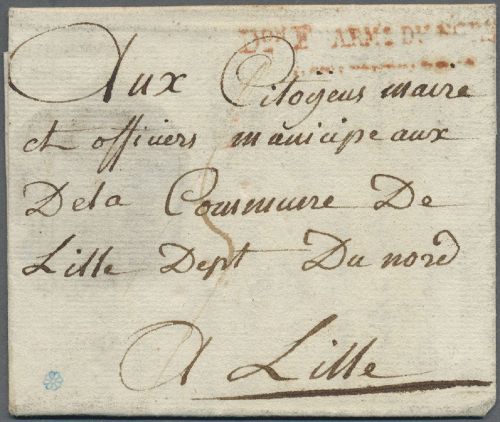 Don F ARM. DU NORD
Aux Citoÿens maire
et officiers municipeaux
Dela Commune De
Lille Dept Du nord
A Lille